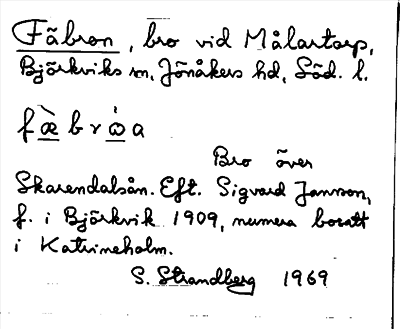 Fäbron, bro vid Målartorp,
Björkviks sn, Jönåkers hd, Söd. l.
fæ̀brω̇a
Bro över
Skarendalsån. Eft. Sigvard Jansson,
f. i Björkvik 1909, numera bosatt
i Katrineholm.
S. Strandberg 1969